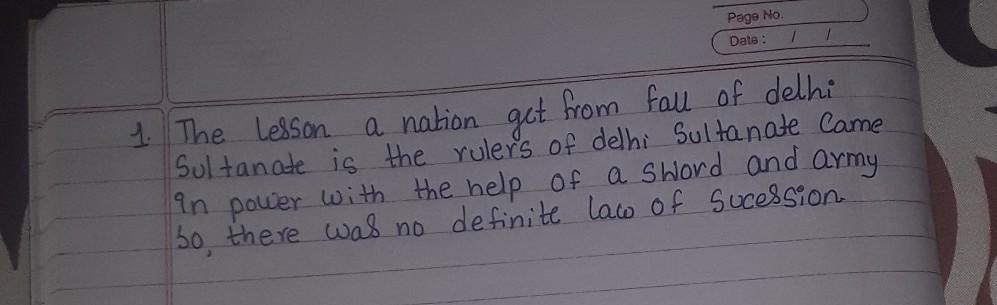 Page No.
Date: / /
1. The lesson a nation get from fall of delhi
Sultanate is the rulers of delhi Sultanate Came
in power with the help of a sword and army
so, there was no definite law of Sucession